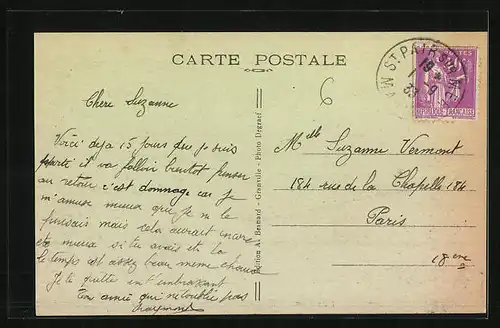 CARTE POSTALE
ST PAIR SUR
POSTES
REPUBLIQUE FRANÇAISE
6
Chere Suzanne
Voici deja 15 jours que je suis
parti et il va falloir bientot penser
au retour c'est dommage car je
m'amuse mieux que je ne le
pensais mais cela aurait encore
ete mieux si tu avais ete la
le temps est assez beau meme chaud
Je te quitte en t'embrassant
Ton amie qui ne t'oublie pas
Edition A. Besnard - Granville - Photo Degraef
Melle Suzanne Vermont
184 rue de la Chapelle 184
Paris
18eme